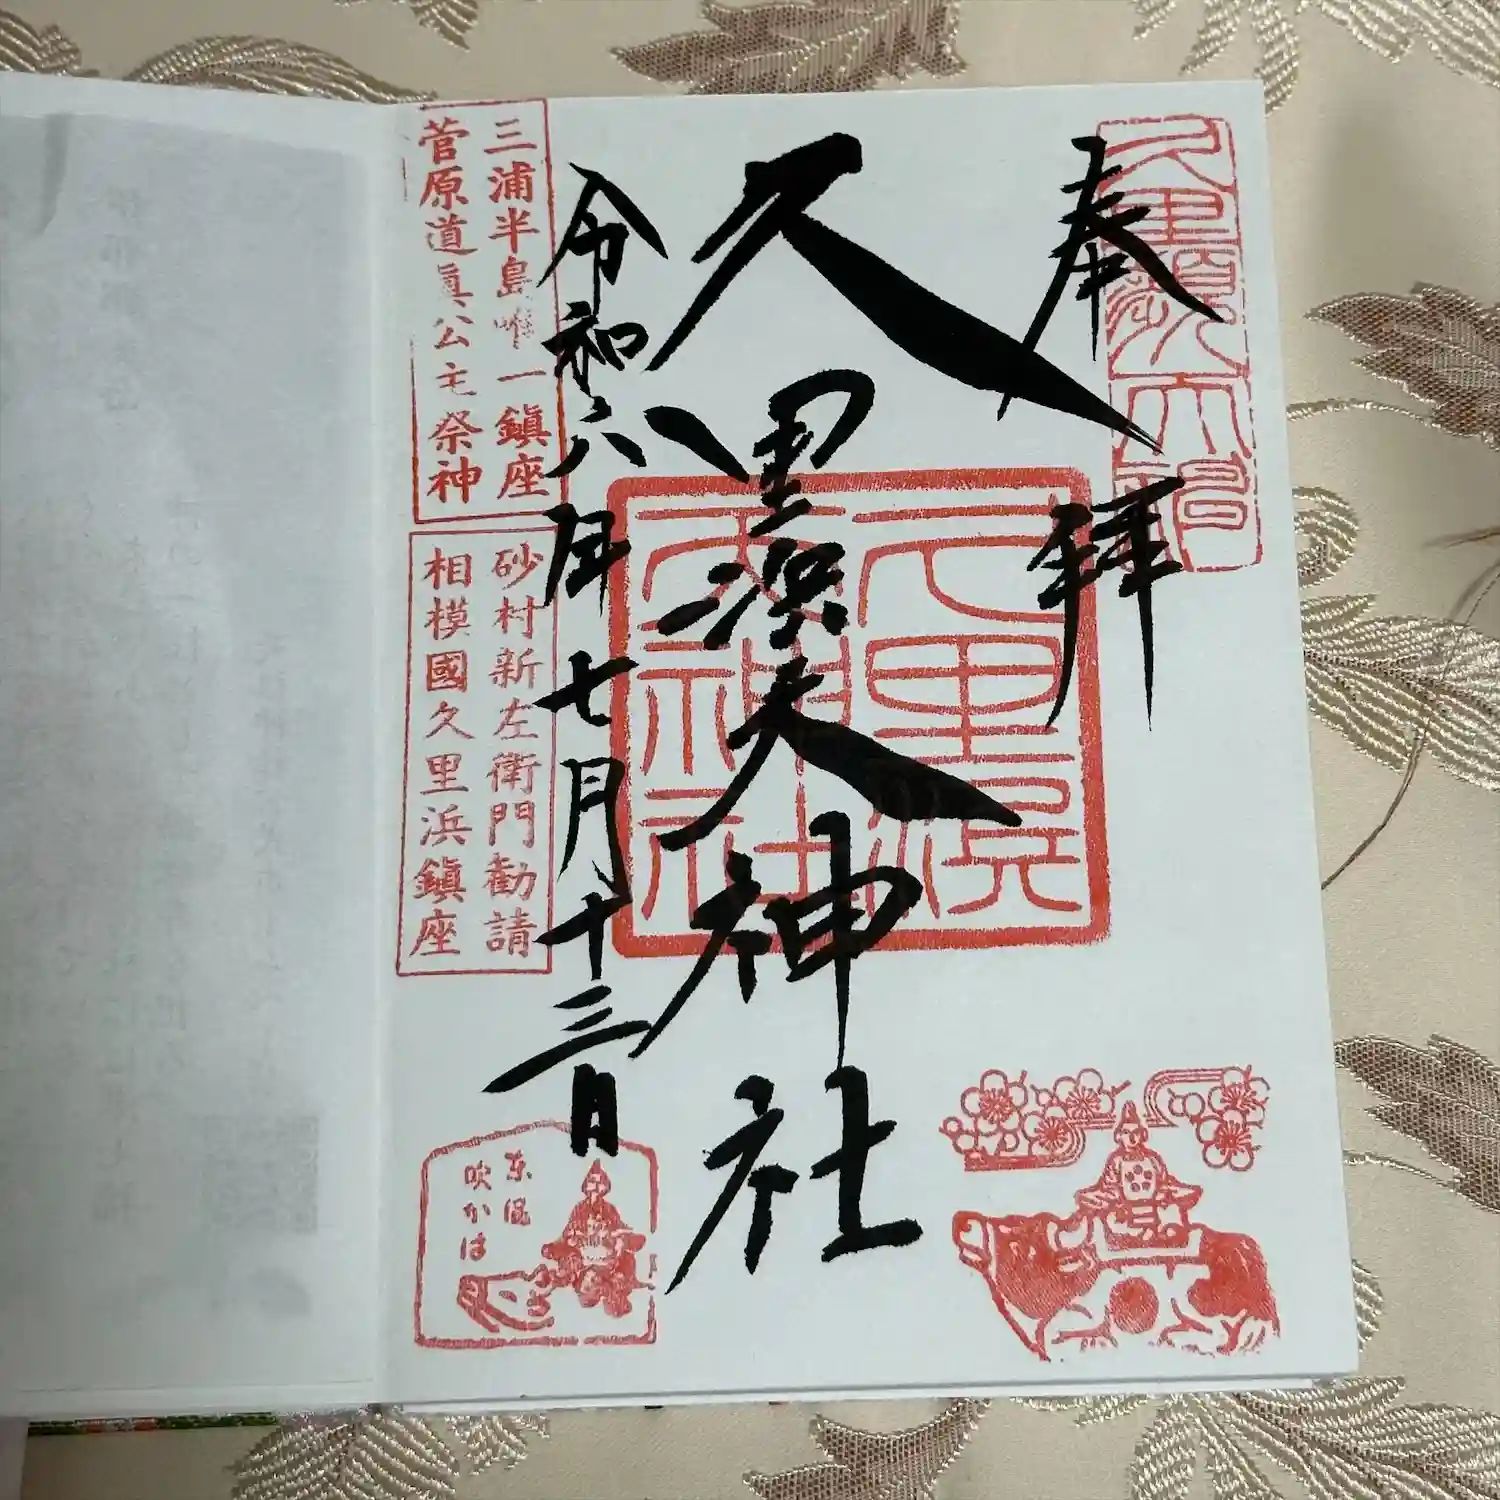 奉拝
久里濱天神社
令和六年七月十三日
三浦半島唯一鎮座
菅原道眞公主祭神
砂村新左衛門勸請
相模國久里浜鎮座
久里濱天神社
東風
吹かは